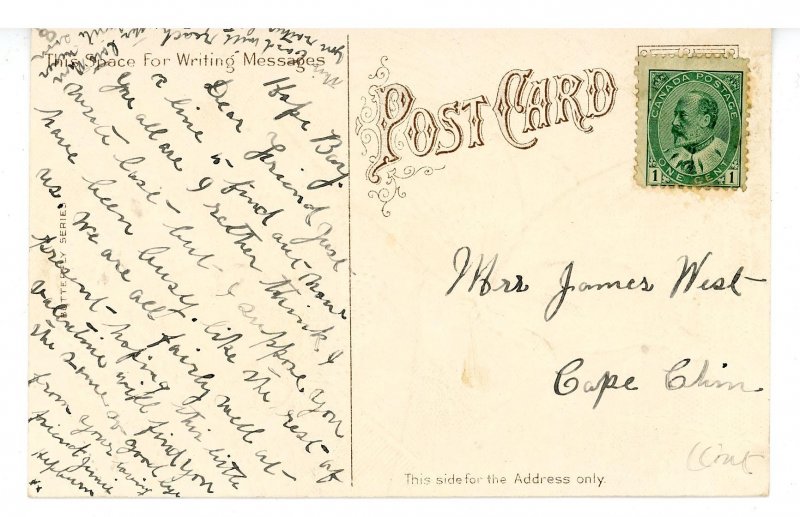 This Space For Writing Messages
Hope Bay.
Dear Friend Just
a line to find out how
you all are I rather think I
wrote last - but I suppose you
have been busy. like the rest of
us. We are all fairly well at -
present - hoping this little
valentine will find you
the same so good bye
from your loving
friend Jennie
Hepburn
BUTTERFLY SERIES
POST CARD
CANADA POSTAGE
1 ONE CENT 1
Mrs James West
Cape Chin
Ont
This side for the Address only.